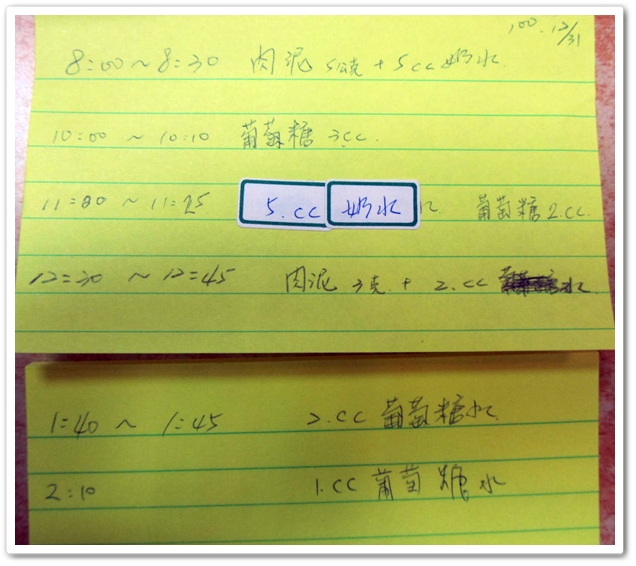 100.12/31
8:00~8:30 肉泥 5公克 + 5cc 奶水
10:00 ~ 10:10 葡萄糖 3cc.
11:00 ~ 11:25 5.cc 奶水 葡萄糖 2.cc.
12:30 ~ 12:45 肉泥 3克 + 2.cc 水
1:40 ~ 1:45 2.cc 葡萄糖水
2:10 1.cc 葡萄糖水